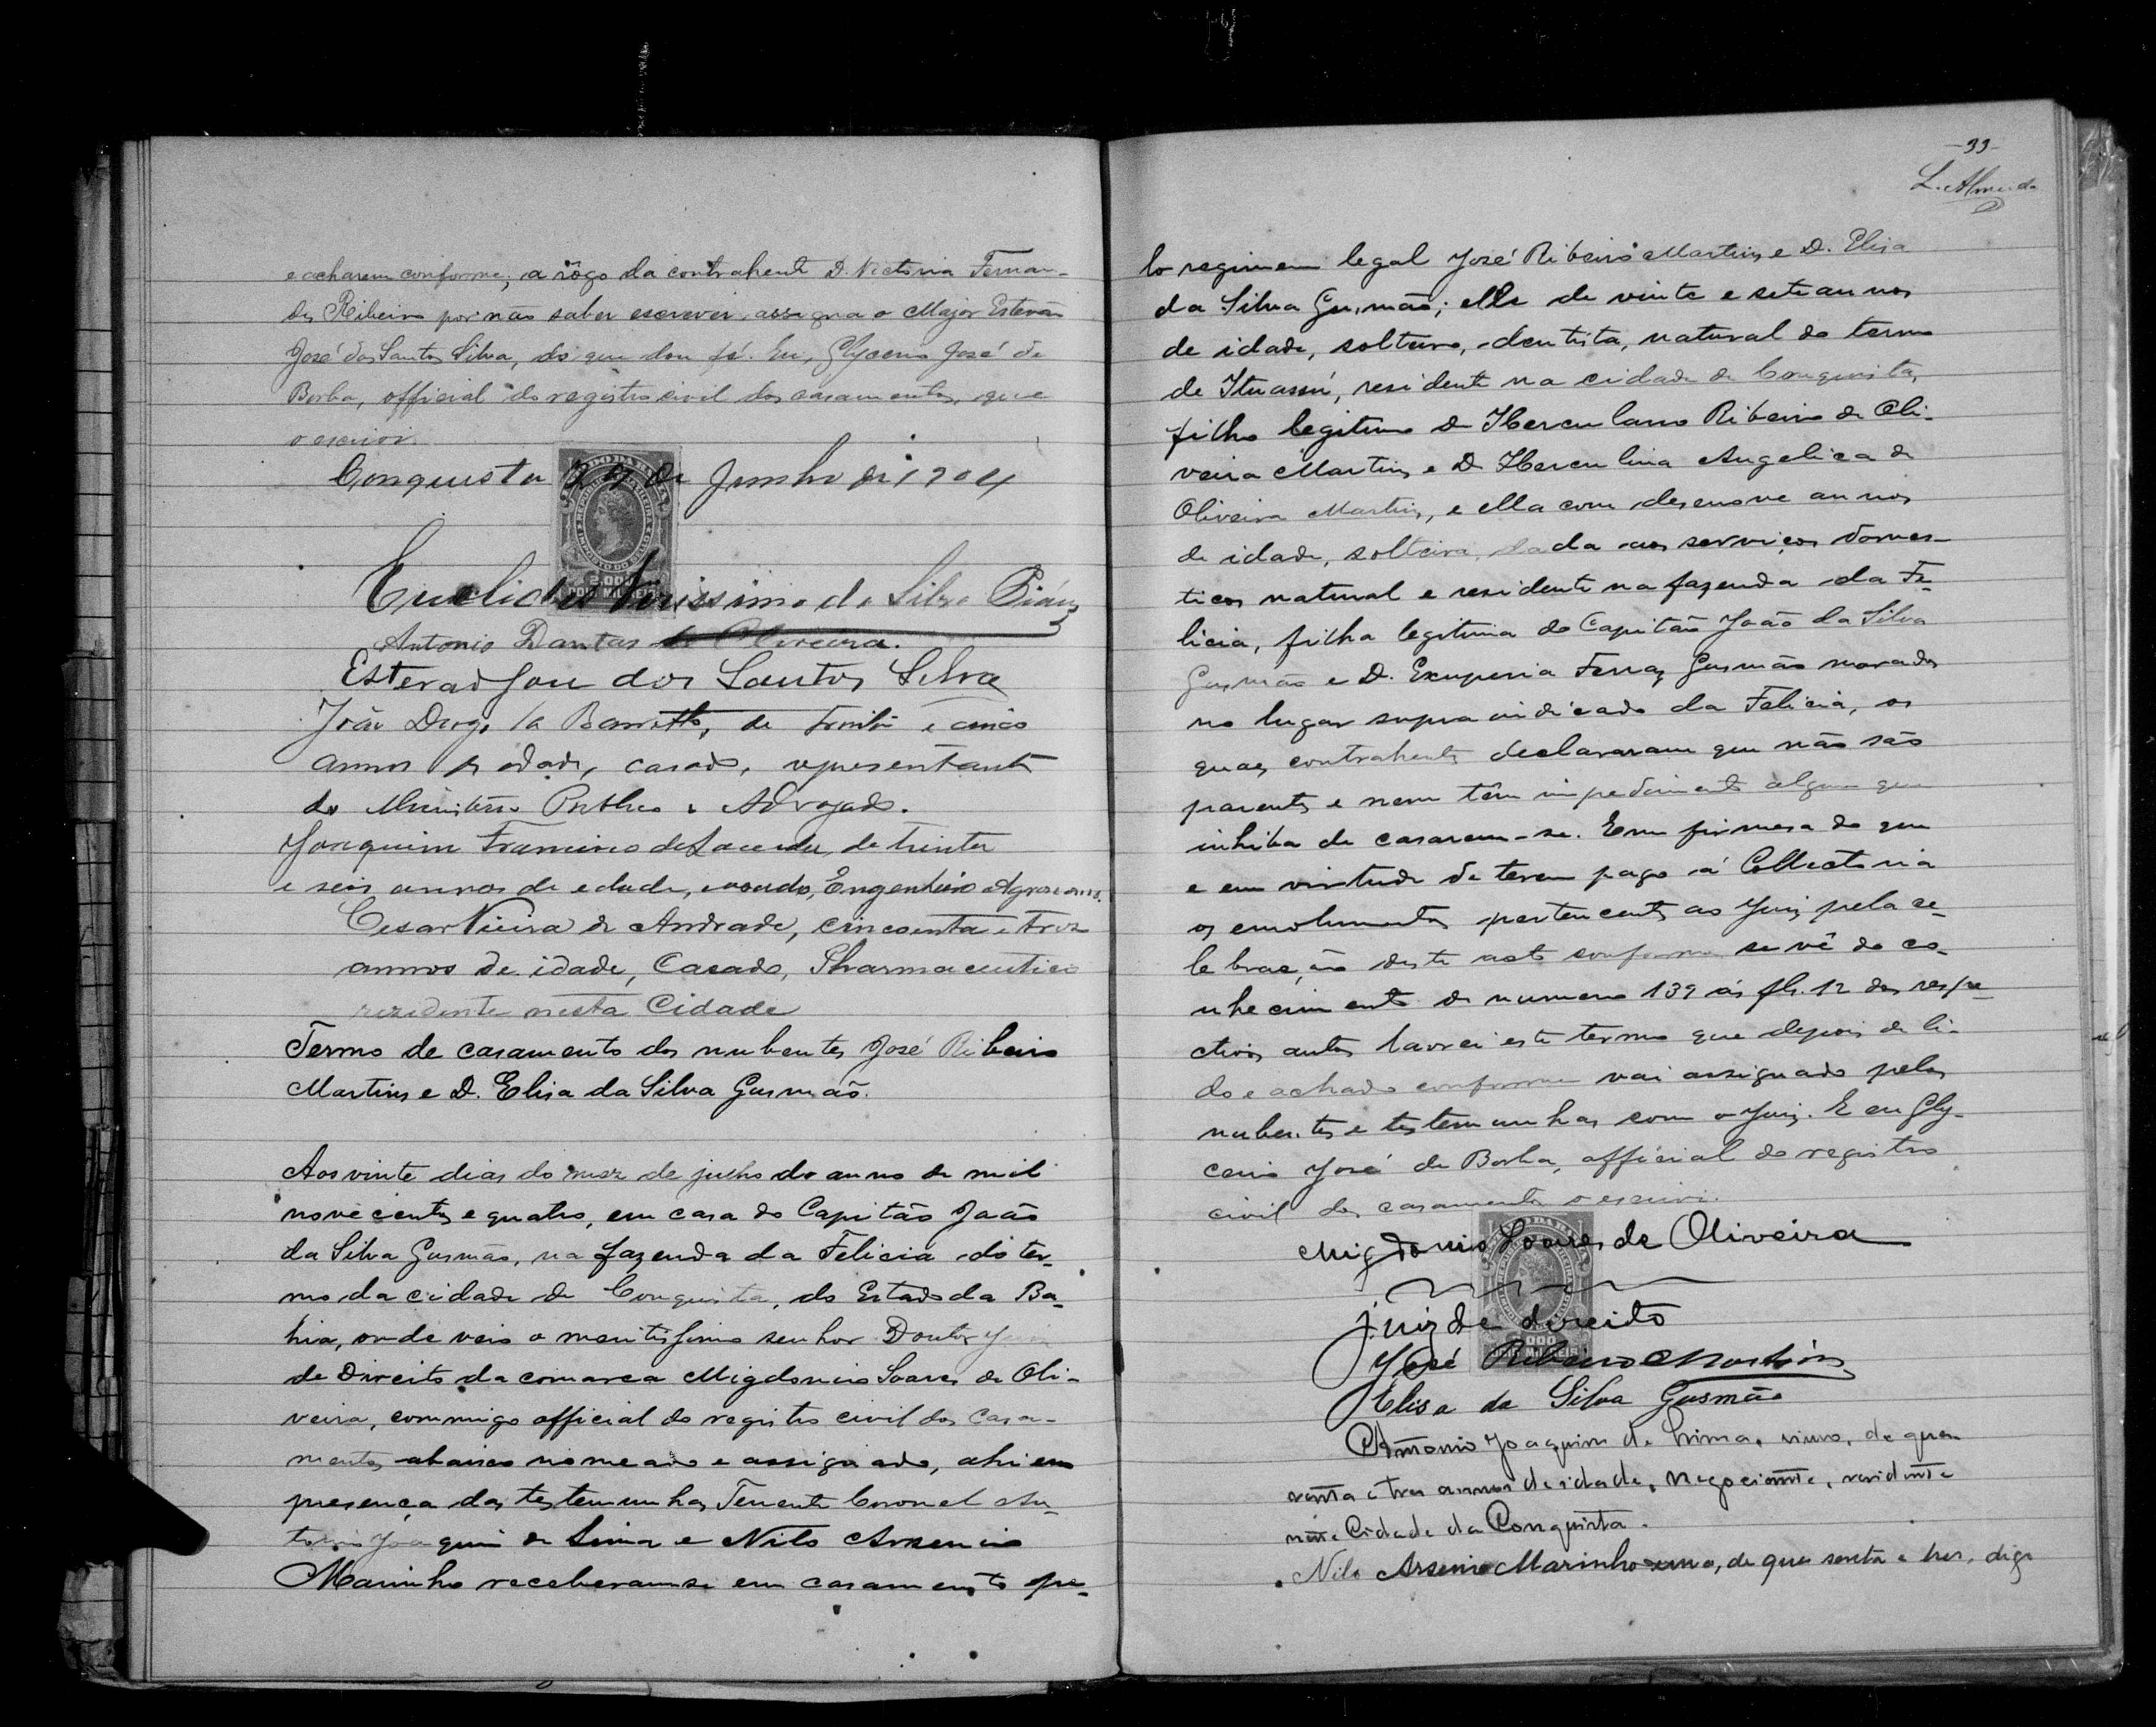 e acharem conforme; a rôgo da contrahente D. Victoria Fernan-
des Ribeiro por não saber escrever assigna o Major Estevão
José dos Santos Silva, do que dou fé. Eu, Glycerio José de
Borba, official do registro civil dos casamentos, que
o escrivi.
Conquista 29 de Junho de 1904
Euclides Verissimo da Silva
Antonio Dantas de Oliveira.
Estevao Jose dos Santos Silva
João Barretto, de trinta e cinco
annos de edade, casado, representante
do Ministerio Publico e Advogado.
Joaquim Francisco de Lacerda, de trinta
e seis annos de edade, casado, Engenheiro Agronomo.
Cesar Vieira de Andrade, cincoenta e trez
annos de idade, Casado, Pharmaceutico
rezidente nesta Cidade
Termo de casamento dos nubentes José Ribeiro
Martins e D. Elisa da Silva Gusmão.
Aos vinte dias do mez de julho do anno de mil
nove centos e quatro, em casa do Capitão João
da Silva Gusmão, na fazenda da Felicia do ter-
mo da cidade de Conquista, do Estado da Ba-
hia, onde veio o meritissimo senhor Doutor Juiz
de Direito da comarca Migdonio Soares de Oli-
veira, commigo official do registro civil dos casa-
mentos abaixo nomeado e assignado, ahi em
presença das testemunhas Tenente Coronel An-
tonio Joaquim de Lima e Nilo Arsenio
Marinho receberam-se em casamento pe-
-33-
L. Almeida
lo regimem legal José Ribeiro Martins e D. Elisa
da Silva Gusmão; elle de vinte e sete annos
de idade, solteiro, dentista, natural do termo
de Ituassú, residente na cidade de Conquista,
filho legitimo de Herculano Ribeiro de Oli-
veira Martins e D. Herculina Angelica de
Oliveira Martins, e ella com desenove annos
de idade, solteira, dada aos serviços domes-
ticos natural e residente na fazenda da Fe-
licia, filha legitima do Capitão João da Silva
Gusmão e D. Exuperia Ferraz Gusmão morados
no lugar supra indicado da Felicia, os
quaes contrahentes declararam que não são
parentes e nem têm impedimento algum que
inhiba de casarem-se. Em firmesa do que
e em virtude de terem pago á Collectoria
os emolumentos pertencentes ao Juiz pela ce-
lebração deste acto conforme se vê do co-
nhecimento de numero 139 ás fls. 12 dos respe-
ctivos autos lavrei este termo que depois de li-
do e achado conforme vai assignado pelos
nubentes e testemunhas com o Juiz. E eu Gly-
cerio José de Borba, official do registro
civil dos casamentos o escrivi.
Migdonio Soares de Oliveira
juiz de direito
José Ribeiro Martins
Elisa da Silva Gusmão
Antonio Joaquim de Lima, viuvo, de qua
renta e tres annos de idade, negociante, residente
nesta Cidade da Conquista.
Nilo Arsenio Marinho, de quarenta e tres, digo